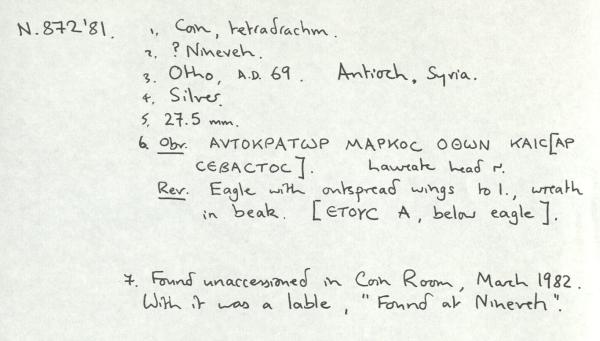 N.872'81. 1. Coin, tetradrachm.
2. ? Nineveh.
3. Otho, A.D. 69. Antioch, Syria.
4. Silver.
5. 27.5 mm.
6. Obv. ΑΥΤΟΚΡΑΤωΡ ΜΑΡΚΟC ΟΘωΝ ΚΑΙC[ΑΡ
CЄΒΑCΤΟC]. Laureate head r.
Rev. Eagle with outspread wings to l., wreath
in beak. [ЄΤΟΥC Α, below eagle].
7. Found unaccessioned in Coin Room, March 1982.
With it was a lable, "Found at Nineveh".